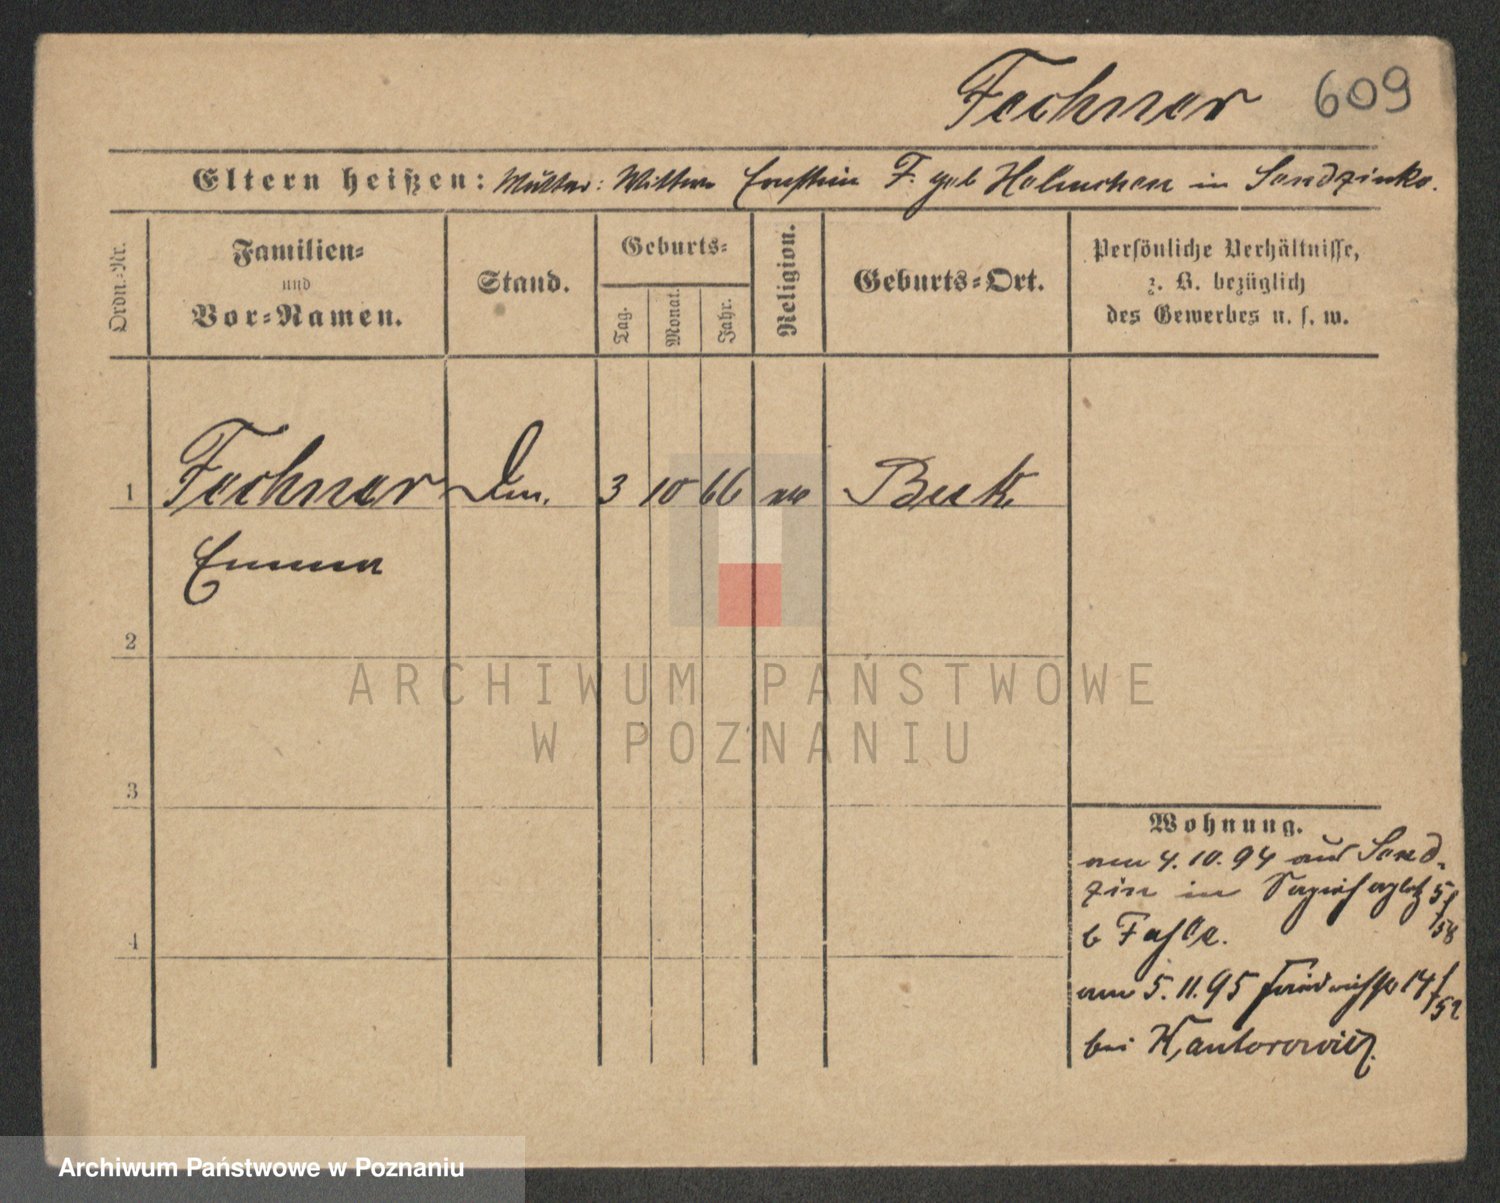 Fechner 609
Eltern heißen: Mutter: Wittwe F. geb in
Ordn.-Nr.
Familien-
und
Vor-Namen.
Stand.
Geburts-
Tag.
Monat.
Jahr.
Religion.
Geburts-Ort.
Persönliche Verhältnisse,
z. B. bezüglich
des Gewerbes u. s. w.
1 Fechner 3 10 66 Buk
Emma
2
3
4
Wohnung.
am 4.10.94 aus Send-
zin in
b Fahle.
am 5.11.95
bei Kantorowicz
ARCHIWUM PAŃSTWOWE
W POZNANIU
Archiwum Państwowe w Poznaniu